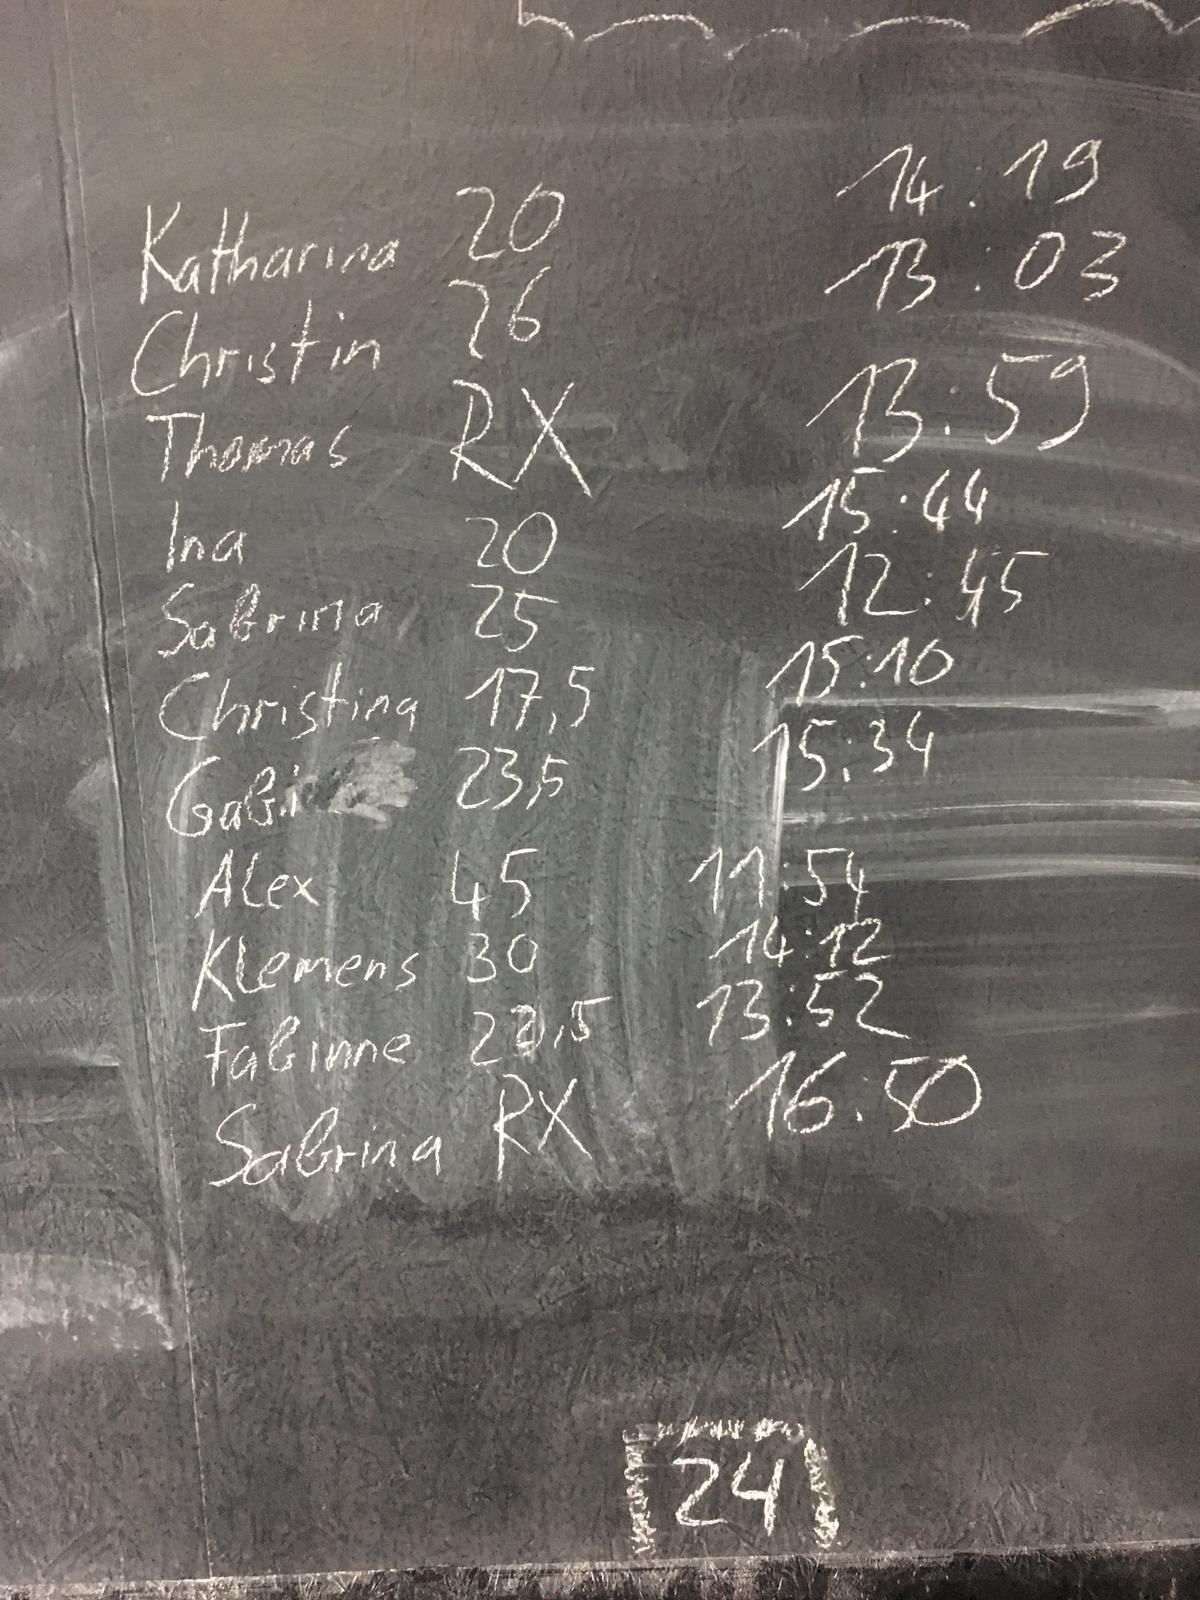 Katharina 20 14:19
Christin 26 13:03
Thomas RX 13:59
Ina 20 15:44
Sabrina 25 12:45
Christina 17,5 15:10
Gabi 23,5 15:34
Alex 45 11:54
Klemens 30 14:12
Fabinne 13:52
Sabrina RX 16:50
24